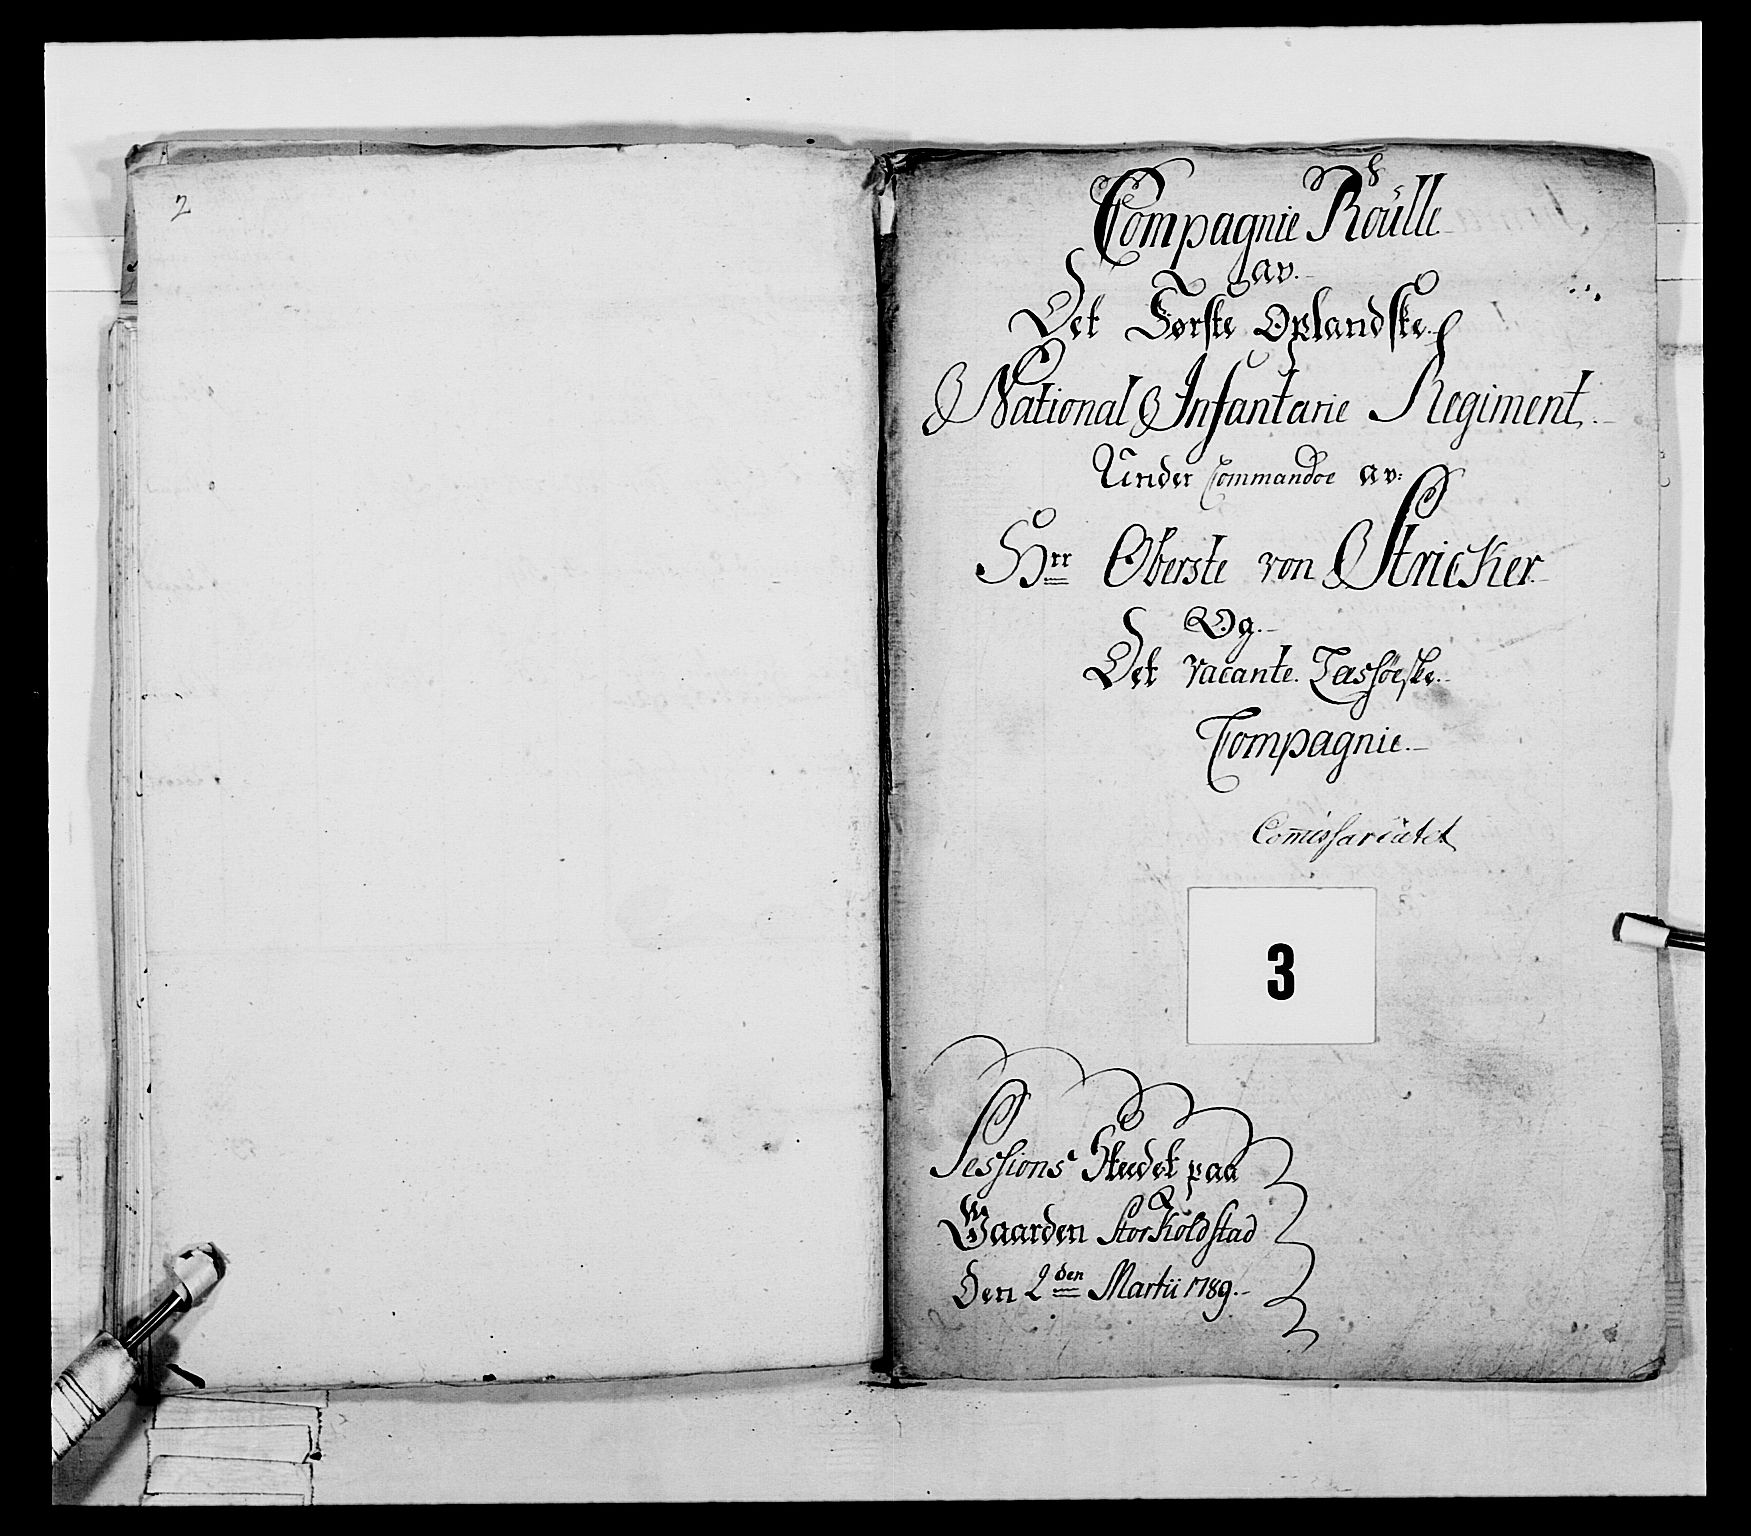 2
Compagnie Roúlle
av.
Det Første Oplandske
National Infantarie Regiment.
Under Commandoe av:
Hrr Oberste von Stricker
Og.
Det vacante. Lassøeske.
Compagnie.
Comissariatet
3
Sessions Steedet paa
Gaarden StorKoldstad
Den 2den Martii 1789.